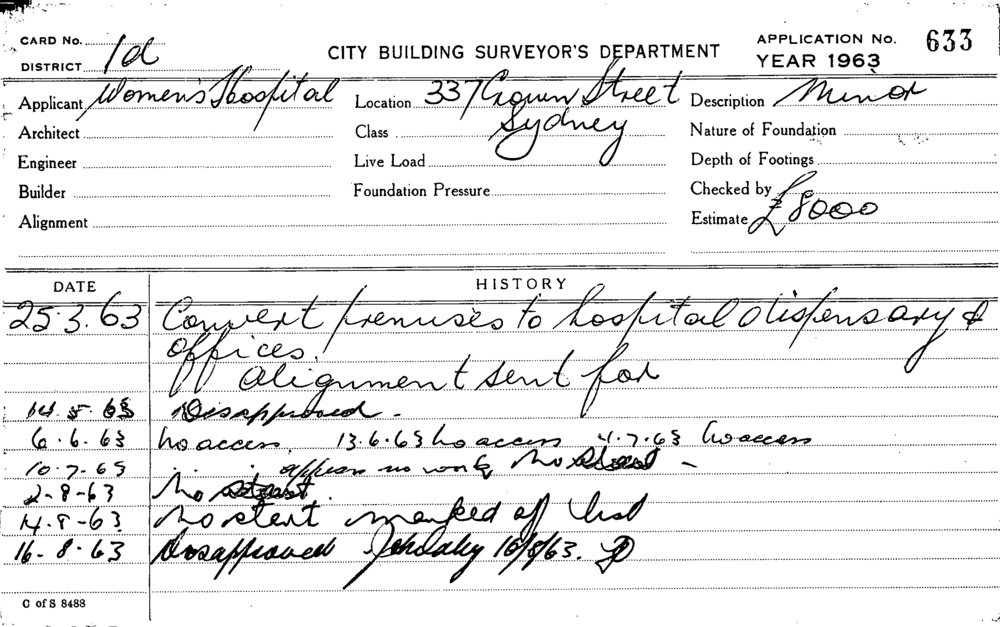 CARD No. 1d
DISTRICT
CITY BUILDING SURVEYOR'S DEPARTMENT
APPLICATION No. 633
YEAR 1963
Applicant Women's Hospital Location 337 Crown Street Description Minor
Architect Class Sydney Nature of Foundation
Engineer Live Load Depth of Footings
Builder Foundation Pressure Checked by
Alignment Estimate £8000
DATE HISTORY
25.3.63 Convert premises to hospital dispensary &
offices.
Alignment sent for
14.5.63 Disapproved.
6.6.63 No access 13.6.63 No access 4.7.63 No access
10.7.63 appears no work No Start -
2-8-63 No start.
14.8-63 No start marked off list
16-8-63 Disapproved 16/8/63.
C of S 8488